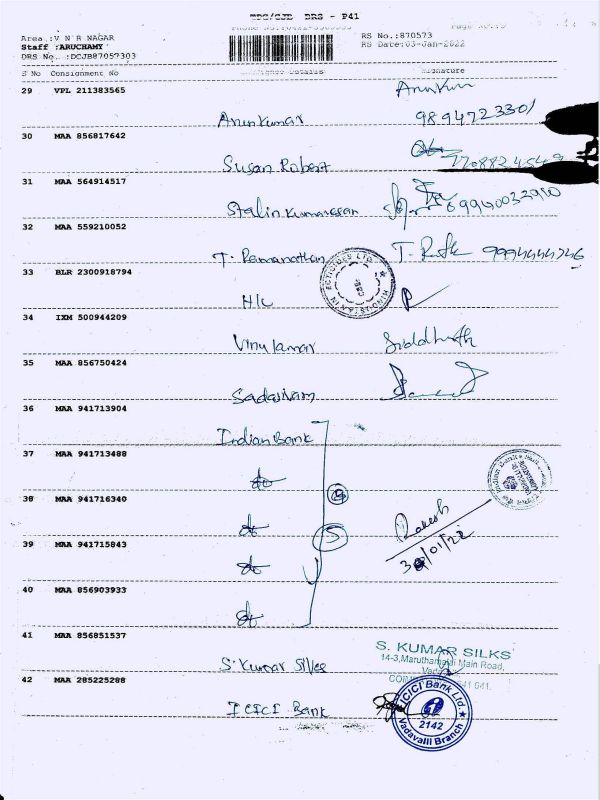 TPC/CJB DRS - P41
Area :V N R NAGAR
Staff :ARUCHAMY
DRS No. :DCJB87057303
RS No.:870573
RS Date:03-Jan-2022
S No Consignment No Consignee Details Signature
29 VPL 211383565
Arunkumar
9894723301
30 MAA 856817642
Susan Robert
31 MAA 564914517
Stalin Kumaresan
32 MAA 559210052
T. Ramanathan T. 9994444746
33 BLR 2300918794
H/C
34 IXM 500944209
Siddharth
35 MAA 856750424
Sadasivam
36 MAA 941713904
Indian Bank
37 MAA 941713488
38 MAA 941716340
5
Rakesh
39 MAA 941715843
/01/22
40 MAA 856903933
41 MAA 856851537
S. KUMAR SILKS
Main Road,
S. Kumar Silks
42 MAA 285225288
ICICI Bank
ICICI Bank Ltd.
2142
Vadavalli Branch